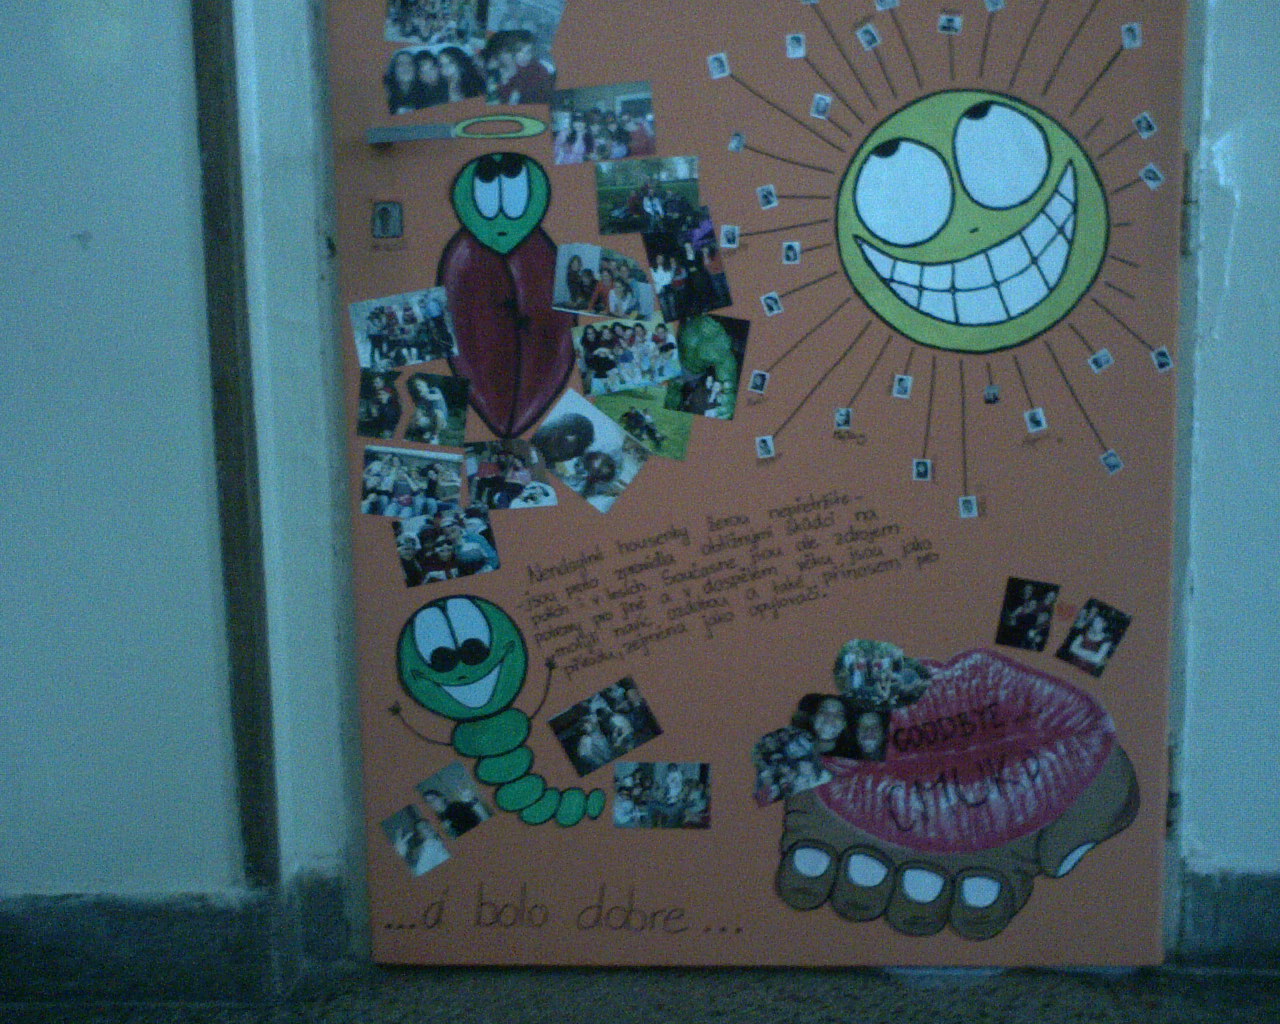 Nenasytné housenky žerou nepřetržitě -
- jsou proto zpravidla obtížnými škůdci na
polích i v lesích. Současně jsou ale zdrojem
potravy pro jiné a v dospělém věku jsou jako
motýli navíc ozdobou a také přínosem pro
přírodu, zejména jako opylovači.
GOODBYE ...
CMUK :D
...a bolo dobre...